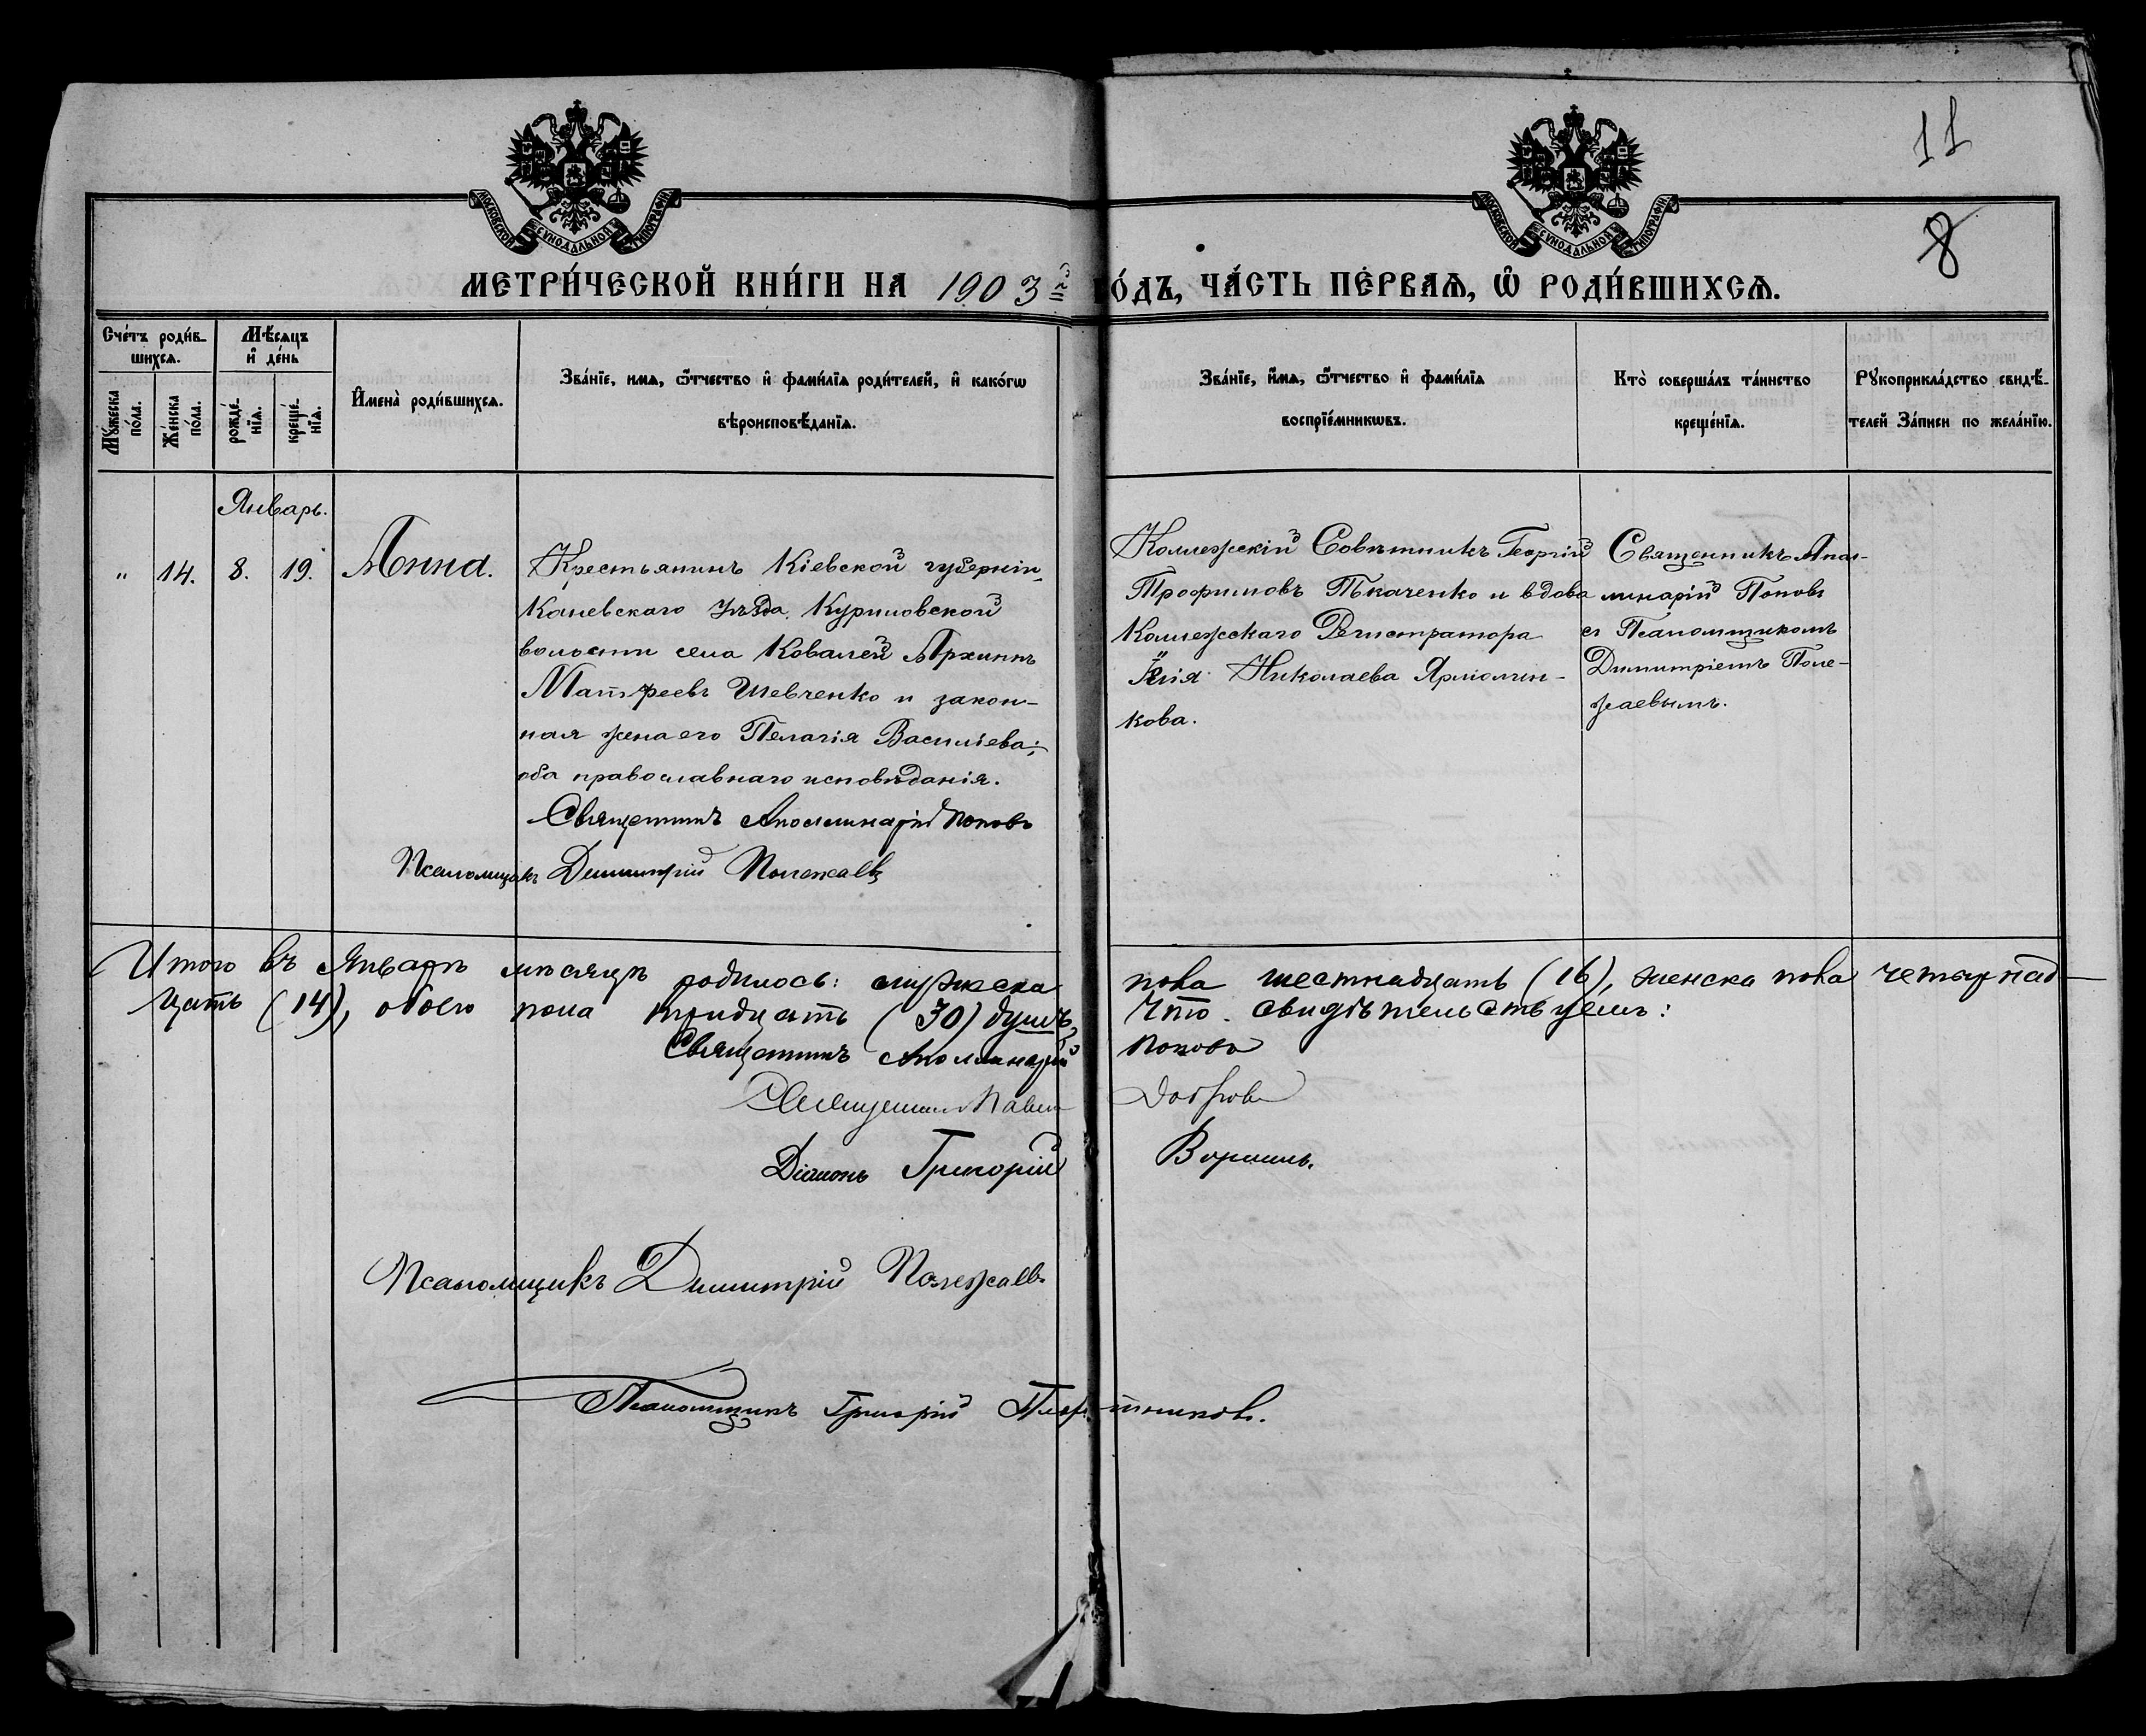 11
8
МОСКОВСКОЙ СѴНОДАЛЬНОЙ ТИПОГРАФІИ
МОСКОВСКОЙ СѴНОДАЛЬНОЙ ТИПОГРАФІИ
МЕТРИ́ЧЕСКОЙ КНИ́ГИ НА 1903й ГО́ДЪ, ЧА́СТЬ ПЕ́РВАѦ, Ѡ҆ РОДИ́ВШИХСѦ.
Сче́тъ роди́в-
шихсѧ.
Мѣ́сѧцъ
и҆ де́нь
Мꙋ́жеска
по́ла.
Же́нска
по́ла.
рожде́-
нїѧ.
креще́-
нїѧ.
И҆мена̀ роди́вшихсѧ.
Зва́нїе, имѧ, ѻ҆́тчество и҆ фами́лїѧ роди́телей, и҆ како́гѡ
вѣроисповѣ́данїѧ.
Зва́нїе, и҆́мѧ, ѻ҆́тчество и҆ фами́лїѧ
воспрїе́мникѡвъ.
Кто̀ соверша́лъ та́инство
креще́нїѧ.
Рꙋкоприкла́дство свидѣ́-
телей За́писи по жела́нїю.
Январь.
" 14. 8. 19. Анна.
Крестьянинъ Кіевской губерніи,
Каневскаго уѣзда, Куриловской
волости села Ковалей Архипъ
Матфеевъ Шевченко и закон-
ная жена его Пелагія Василіева;
оба православнаго исповѣданія.
Священникъ Аполлинарій Поповъ
Псаломщикъ Димитрій Полежаевъ
Коллежскій Совѣтникъ Георгій
Трофимовъ Ткаченко и вдова
Коллежскаго Регистратора
Юлія Николаева Ярмолин-
кова.
Священникъ Апол-
линарій Поповъ
съ Псаломщикомъ
Димитріемъ Поле-
жаевымъ.
Итого въ Январѣ мѣсяцѣ родилось: мужеска пола шестнадцать (16), женска пола четырнад-
цать (14), обоего пола тридцать (30) душъ, Что свидѣтельствуемъ:
Священникъ Аполлинарій Поповъ
Священникъ Павелъ
Діаконъ Григорій
Псаломщикъ Димитрій Полежаевъ
Псаломщикъ Григорій Плотниковъ.